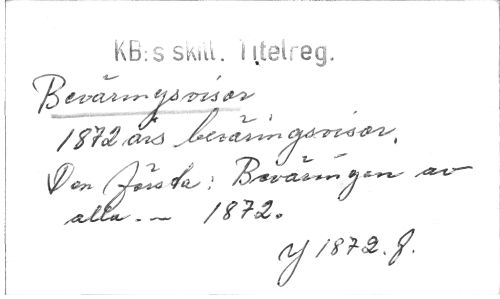 KB:s skill. Titelreg.
Beväringsvisor
1872 års beväringsvisor.
Den första: Beväringen av
alla. - 1872.
Y 1872. 8.